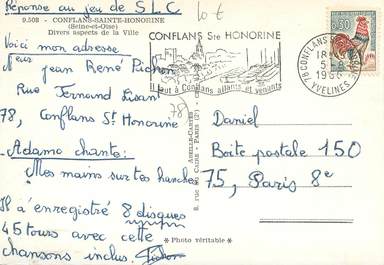 Réponse au jeu de S L C
10 €
9.508 - CONFLANS-SAINTE-HONORINE
(Seine-et-Oise)
Divers aspects de la Ville
Voici mon adresse
Jean René Pichon
Rue Fernand
78, Conflans St Honorine
Adamo chante:
Mes mains sur tes hanches
Il a enregistré 8 disques
45 tours avec cette
chansons inclus.
(78)
CONFLANS Ste HONORINE
Il faut à Conflans allants et venants
78 CONFLANS
18
5
YVELINES
0,30
Daniel
Boite postale 150
75, Paris 8e
* Photo véritable *